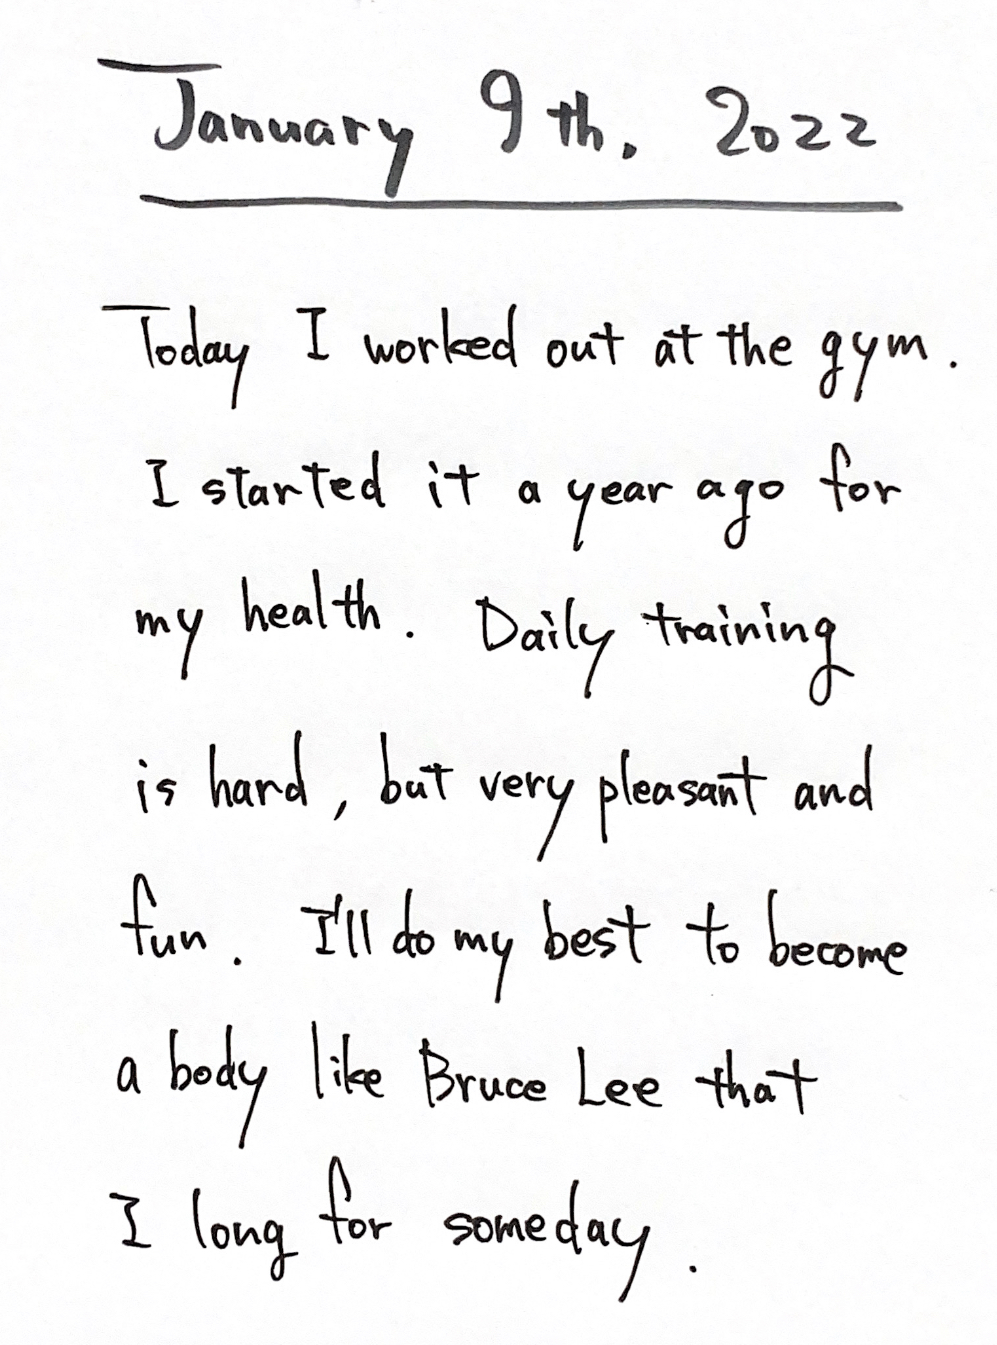 January 9th. 2022
Today I worked out at the gym.
I started it a year ago for
my health. Daily training
is hard, but very pleasant and
fun. I'll do my best to become
a body like Bruce Lee that
I long for someday.